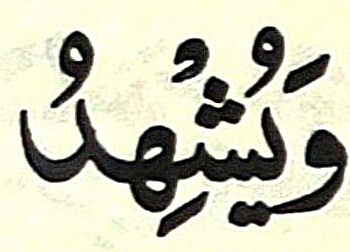 وَيُشْهِدُ